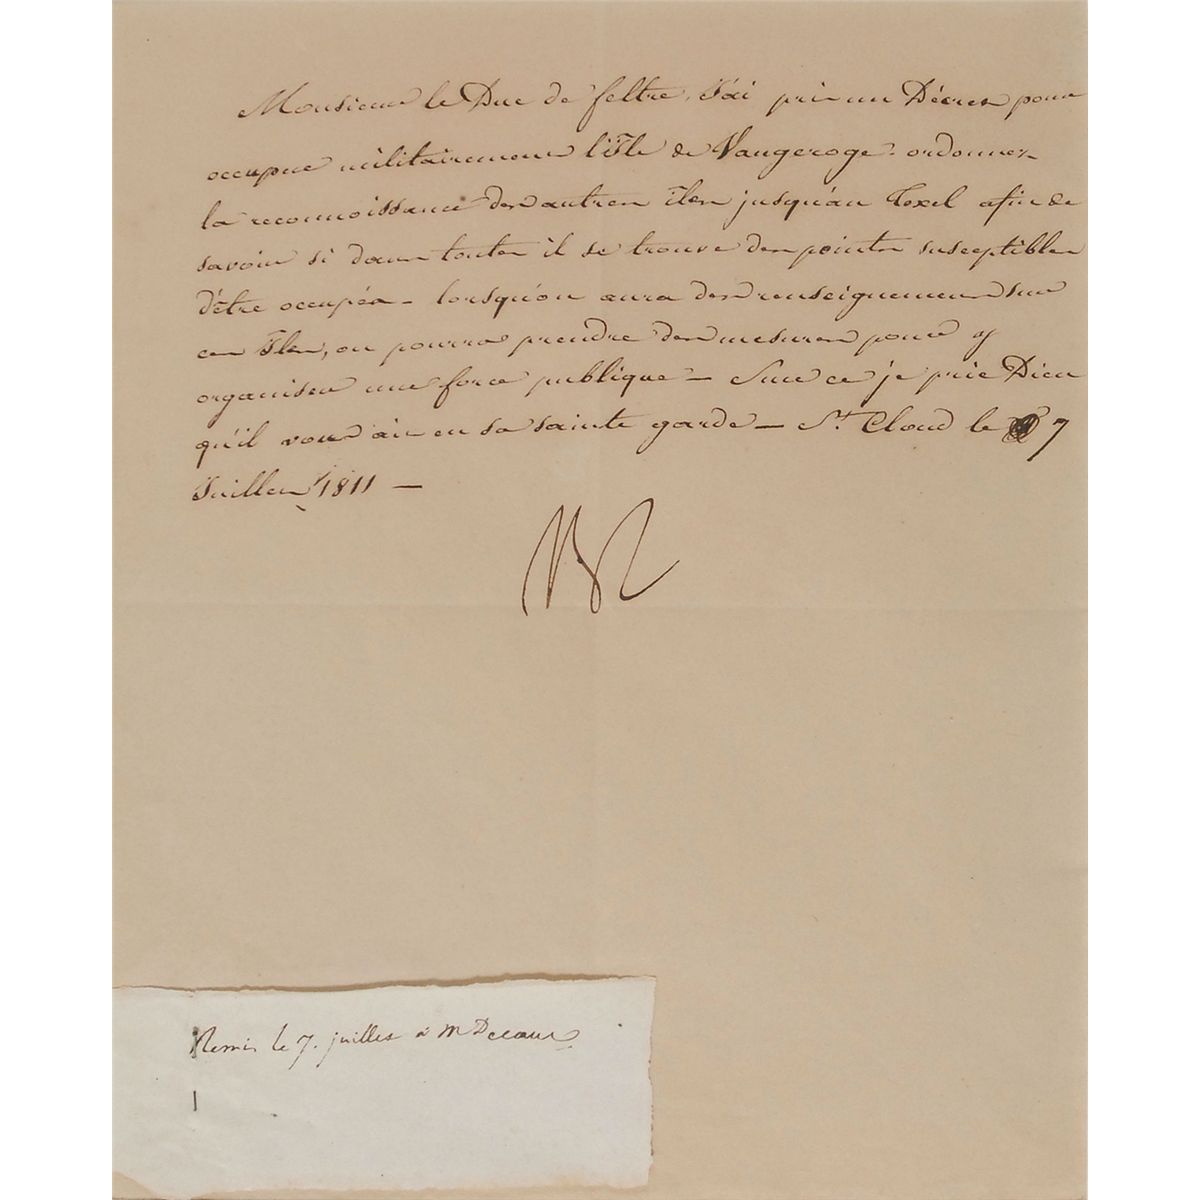 Monsieur le Duc de feltre, J'ai pris un Décret pour
occuper militairement l'isle de Vangeroge. ordonnez
la reconnoissance des autres îles jusqu'au Texel afin de
savoir si dans toutes il se trouve des points susceptibles
d'être occupés — lorsqu'on aura des renseignemens sur
ces Iles, on pourra prendre des mesures pour y
organiser une force publique — Sur ce je prie Dieu
qu'il vous ait en sa sainte garde — St. Cloud le 7
Juillet 1811 —
Remis le 7. juillet à M Decaux